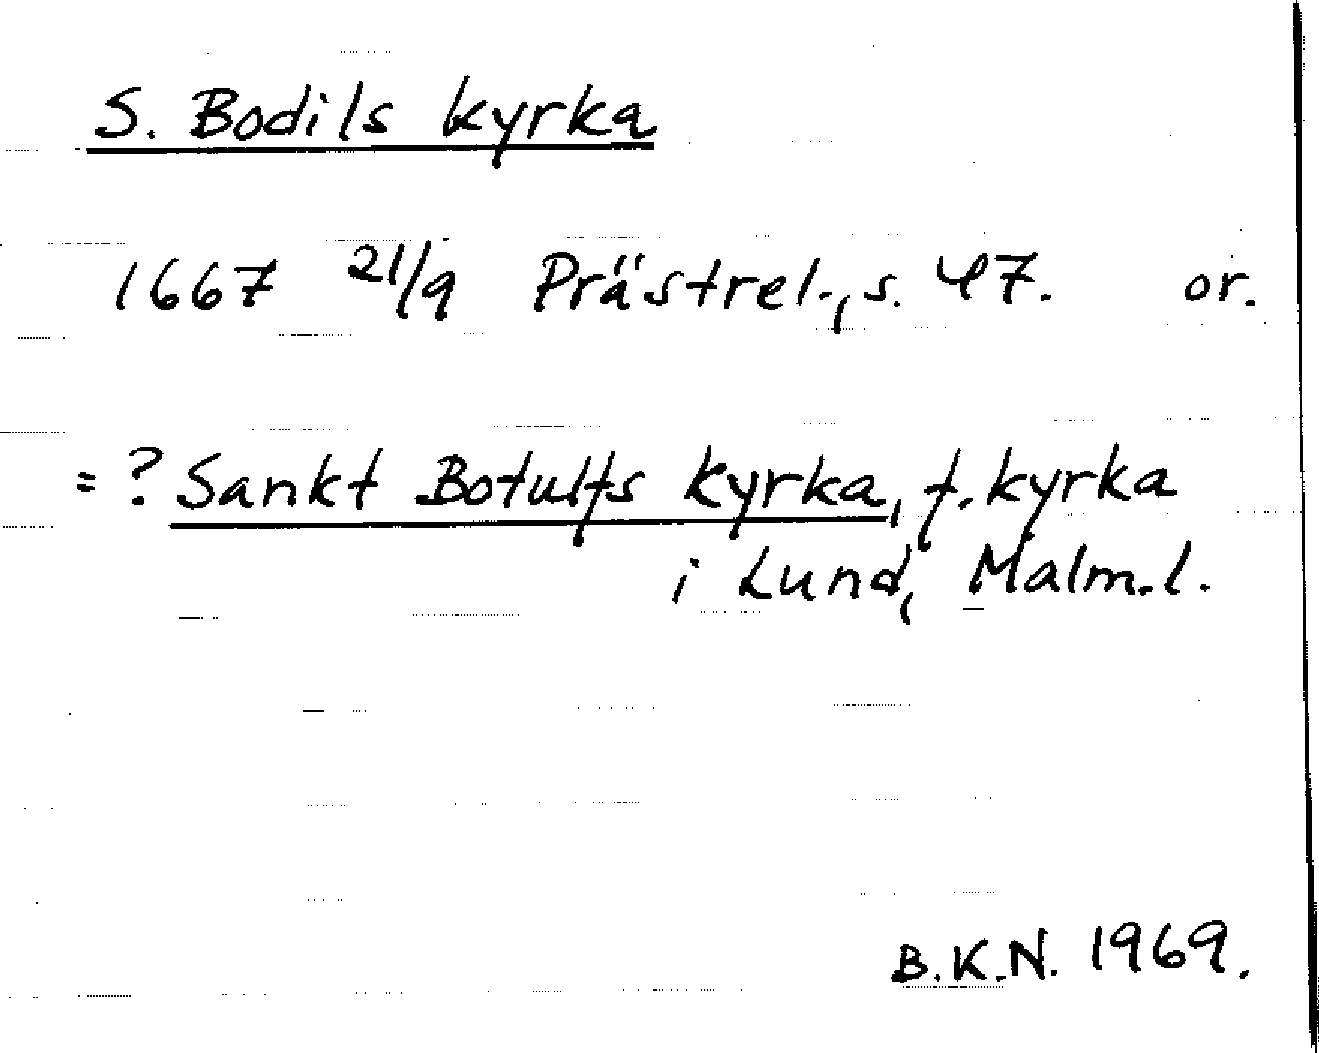 S. Bodils kyrka
1667 21/9 Prästrel., s. 47. or.
= ? Sankt Botulfs kyrka, f. kyrka
i Lund, Malm. l.
B.K.N. 1969.